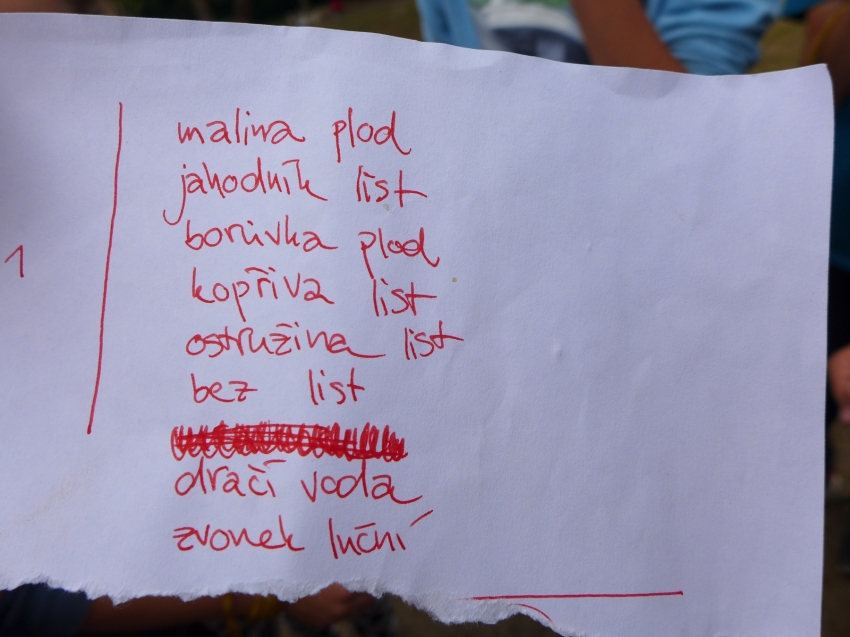 malina plod
jahodník list
borůvka plod
kopřiva list
1
ostružina list
bez list
dračí voda
zvonek luční